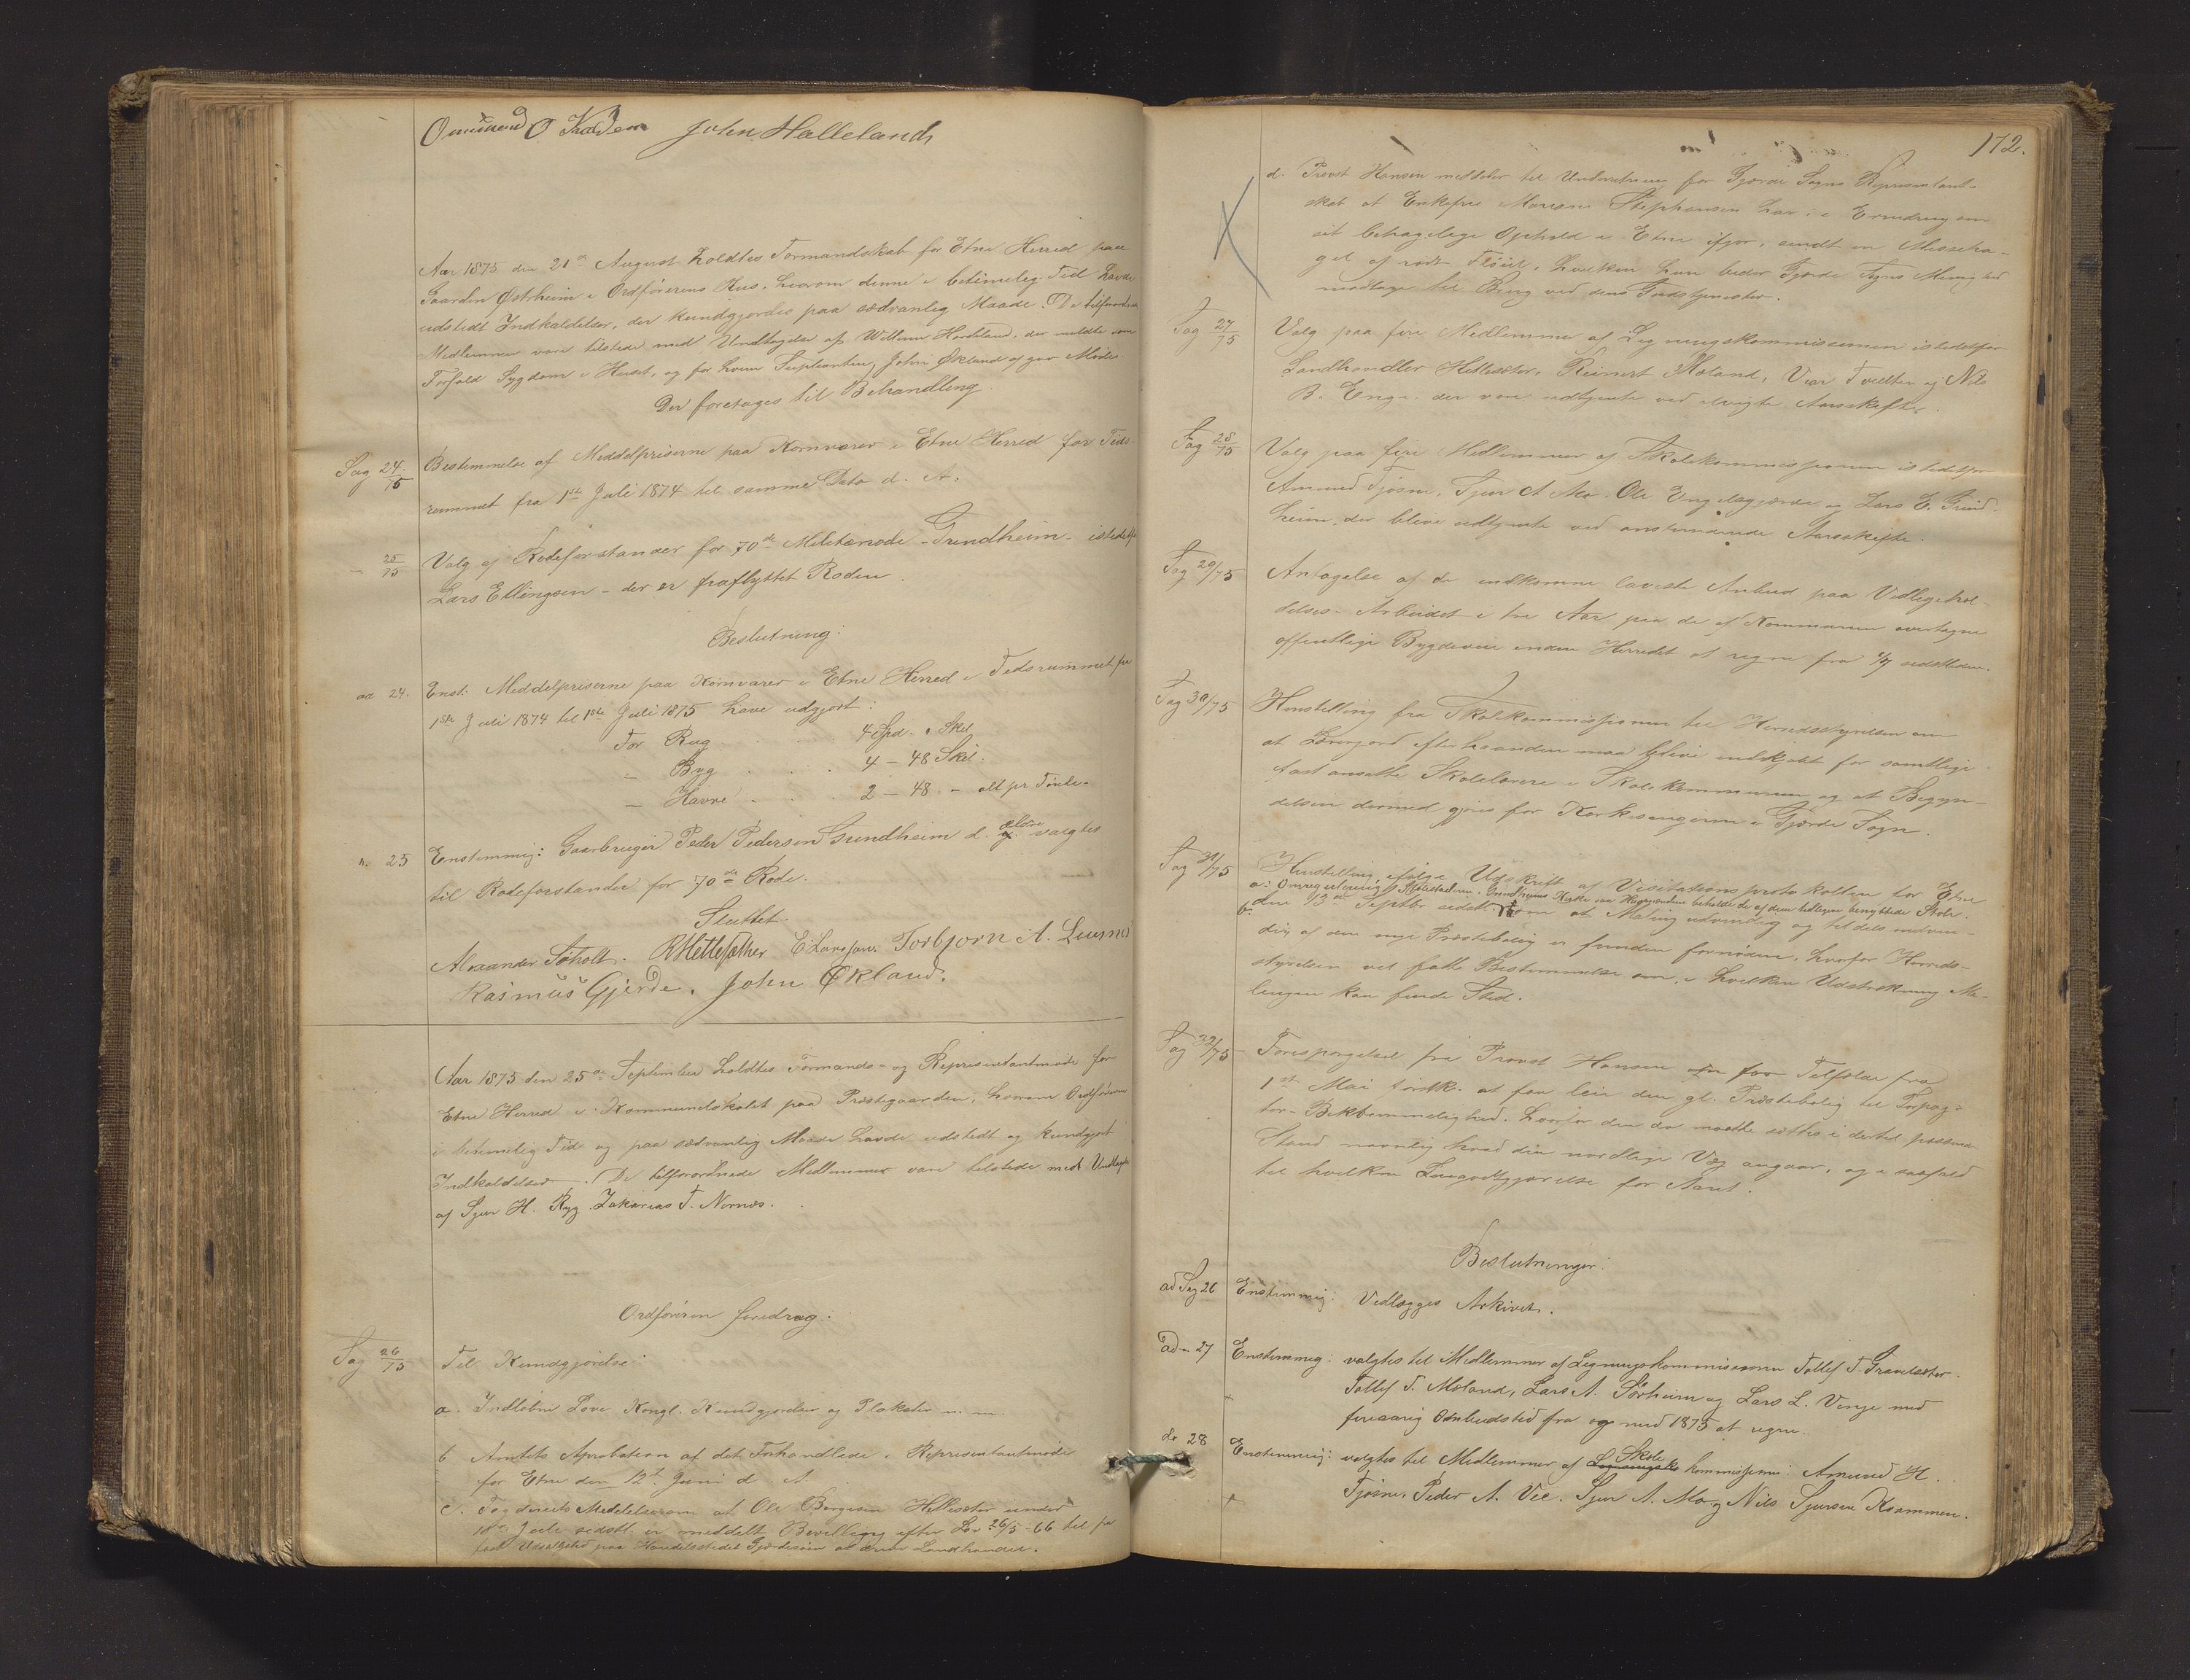 Ommund O Kaldem John Halleland
Aar 1875 den 21de August holdtes Formandskab for Etne Herred paa
Gaarden Østrheim i Ordførerens Hus, hvorom denne i betimelig Tid havde
udstedt Indkaldelser, der kundgjordes paa sædvanlig Maade. De tilforordnede
Medlemmer vare tilstede med Undtagelse af Willum Hardeland, der meldte som
Forfald Sygdom i Huset, og for hvem Supleanten John Økland af gav Møde.
Der foretages til Behandling
Sag 24/75 Bestemmelse af Middelpriserne paa Kornvarer i Etne Herred for Tids-
rummet fra 1ste Juli 1874 til samme Dato d. A.
— 25/75 Valg af Rodeforstander for 70de Militærrode - Grindheim - istedetfor
Lars Ellingsen - der er fraflyttet Roden.
Beslutning:
ad 24. Enst: Middelpriserne paa Kornvarer i Etne Herred i Tidsrummet fra
1ste Juli 1874 til 1ste Juli 1875 have udgjort:
For Rug . . . 4 Spd. " Skil
— Byg . . . 4 — 48 Skil.
— Havre . . . 2 — 48 — alt pr Tønde.
" 25 Enstemmig: Gaarbruger Peder Pedersen Grindheim d. ældre valgtes
til Rodeforstander for 70de Rode.
Sluttet.
Alexander Søholt. R Hettesæther E. Larsson. Torbjørn A. Leusnes
Rasmus Gjerde. John Økland.
Aar 1875 den 25de September holdtes Formands- og Representantmøde for
Etne Herred i Kommunelokalet paa Prestegaarden, hvorom Ordføreren
i betimelig Tid og paa sædvanlig Maade havde udstedt og kundgjort
Indkaldelser. De tilforordnede Medlemmer vare tilstede med Undtagelse
af Sjur H. Ryg. Zakarias T. Nornes.
Ordføreren foredrog:
Sag 26/75 Til Kundgjørelse:
a. Indløbne Love Kongl. Kundgjørelser og Plakater m. m.
b Amtets Aprobation af det Forhandlede i Representantmøde
for Etne den 12te Juni d. A.
c. Fogderiets Meddelelse om at Ole Børgesen Hettesæter under
18de Juli sidstl. er meddelt Bevilling efter Lov 26/5-66 til fra
fast Udsalgssted paa Handelsstedet Gjerdesøen at drive Landhandel.
172.
d. Provst Hansen meddeler til Underretning for Gjerde Sogns Representant-
skab at Enkefrue Mariane Stephansen har, i Erindring om
sit behagelige Ophold i Etne ifjor, sendt en Messeha-
gel af rødt Fløiel, hvilken hun beder Gjerde Sogns Menighed
modtage til Brug ved dens Gudstjenester.
Sag 27/75 Valg paa fire Medlemmer af Ligningskommissionen istedetfor
Landhandler Hettesæter, Reinert Moland, Viar Tveiten og Nils
B. Enge. der vare udtjente ved afvigte Aarsskifte.
Sag 28/75 Valg paa fire Medlemmer af Skolekommissionen istedetfor
Amund Fjøsne, Sjur A Mo. Ole Engelsgjerde og Lars E. Grind-
heim, der blive udtjente ved anstundende Aarsskifte.
Sag 29/75 Antagelse af de indkomne laveste Anbud paa Vedligehol-
delses-Arbeidet i tre Aar paa de af Kommunen overtagne
offentlige Bygdeveie inden Herredet at regne fra sidstleden.
Sag 30/75 Henstilling fra Skolekommissionen til Herredsstyrelsen om
at Lønjord efterhaanden maa blive indkjøbt for samtlige
fast ansatte Skolelærere i Skolekommunen og at Begyn-
delsen dermed gjøres for Kirkesangeren i Gjerde Sogn.
Sag 31/75 Henstilling, ifølge Udskrift af Visitationsprotokollen for Etne
a: Omregulering Skolestederne. Grindheims Kirke og beholde de af dem tidligere benyttede Stole.
b: den 13de Septbr sidstl. om at Maling udvendig og til dels indven-
dig af den nye Præstebolig er funden fornøden, hvorfor Herreds-
styrelsen vil fatte Bestemmelse om, i hvilken Udstrækning Ma-
lingen kan finde Sted.
Sag 32/75 - Forespørgelse fra Provst Hansen Tilfælde fra
1ste Mai førstk. at faa leie den gl. Præstebolig til Forpag-
ter-Bekvemmelighed, hvorfor den da maatte sættes i dertil passende
Stand navnlig hvad den nordlige Væg angaar, og i saafald
til hvilken Leiegodtgjørelse for Aaret.
Beslutninger:
ad Sag 26 Enstemmig: Vedlægges Arkivet.
ad " 27 Enstemmig: valgtes til Medlemmer af Ligningskommissionen Tollef T. Grandesæter.
Tollef T. Moland, Lars A. Sørheim og Lars L. Vinje med
fireaarig Ombudstid fra og med 1875 at regne.
do 28 Enstemmig: valgtes til Medlemmer af Skole kommissionen: Amund H.
Fjøsne, Peder A. Vee. Sjur A. Mo og Nils Sjursen Kvammen.